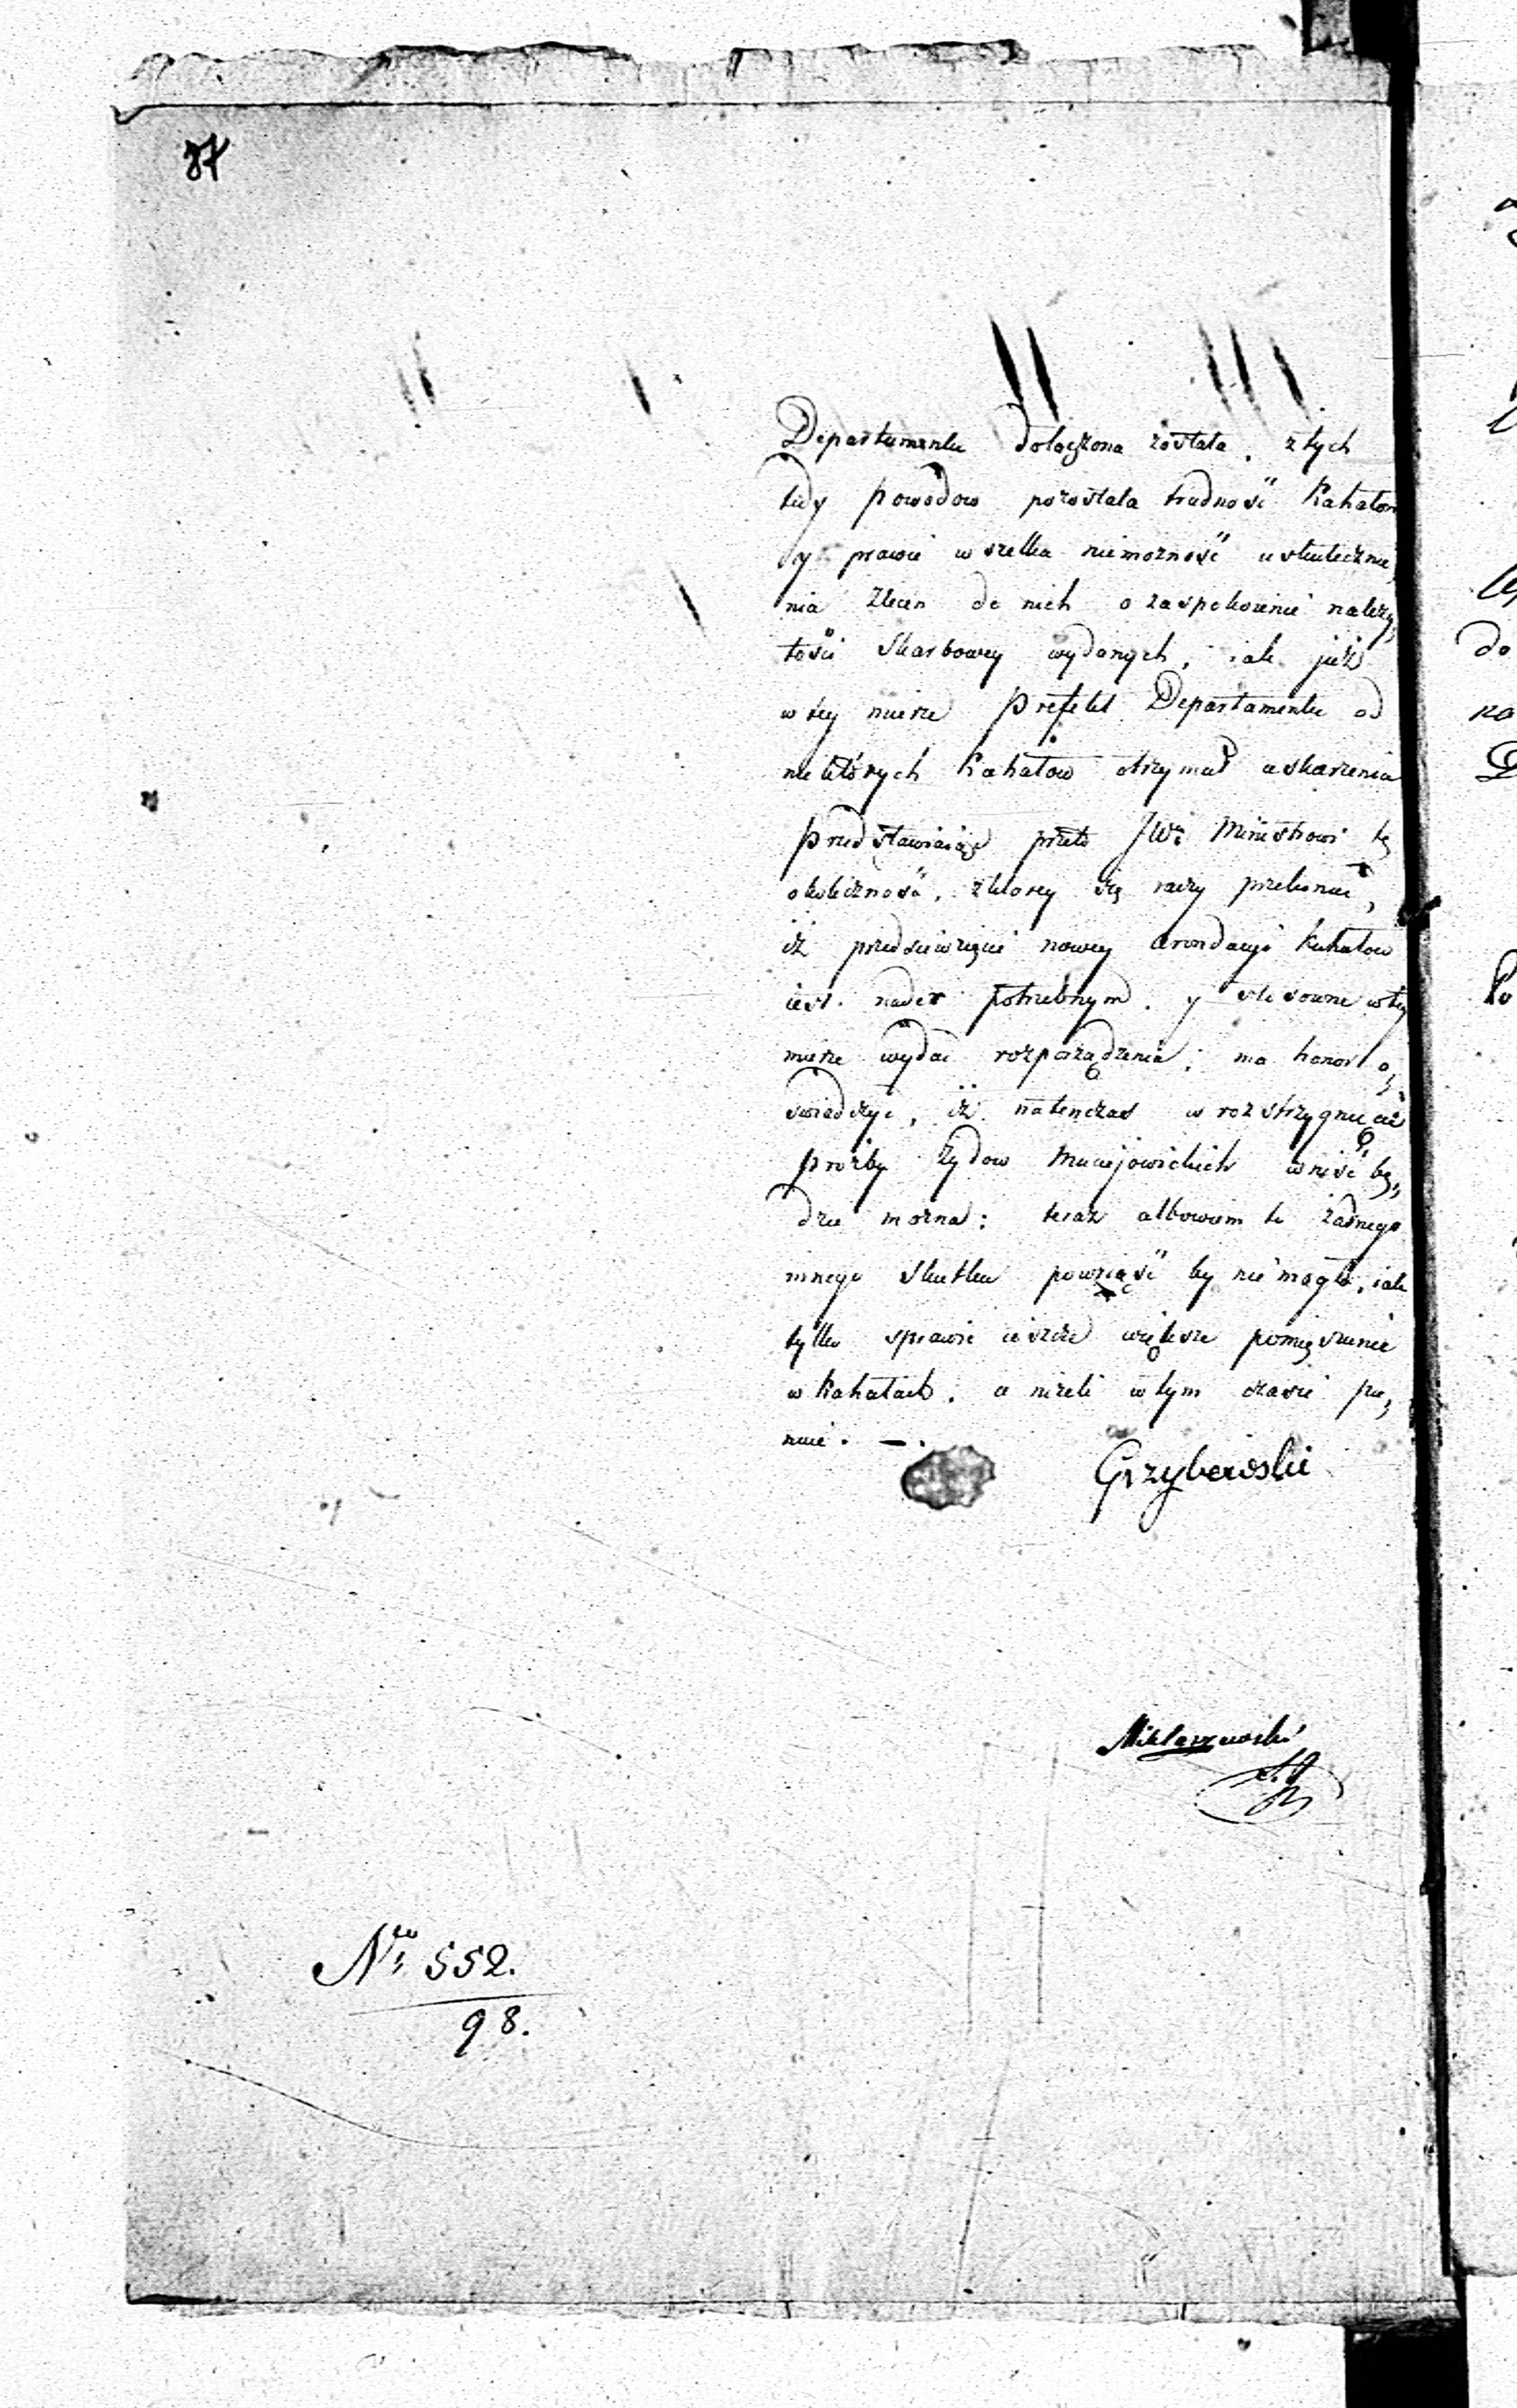 87
Departamentu dołączona została. z tych
tedy powodow pozostała trudność Kahałom
y prawie wszelka niemożność uskutecznie,
nia Zleceń do nich o zaspokoienie należy,
tości Skarbowey wydanych, iak już
w tey mierze Prefekt Departamentu od
niektórych Kahałow otrzymał uskarżenia
Przedstawiaiąc przeto JWu Ministrowi tę
okoliczność, z ktorey się raczy przekonać,
iż przedsiewzięcie nowey arondacyi Kahałow
iest nader potrzebnym. y stosowne w tey
mierze wydać rozporządzenia; ma honor o,
świadczyć, iż natenczas w rozstrzygnięcie
proźby Żydow Maciejowickich wniść bę,
dzie można: teraz albowiem to żadnego
innego skutku powziąść by nie mogło, iak
tylko sprawić ieszcze większe pomięszanie
w Kahałach, a niżeli w tym czasie pa,
nuie. —.
Grzybowski
Miklaszewski
S. J.
No 552.
98.